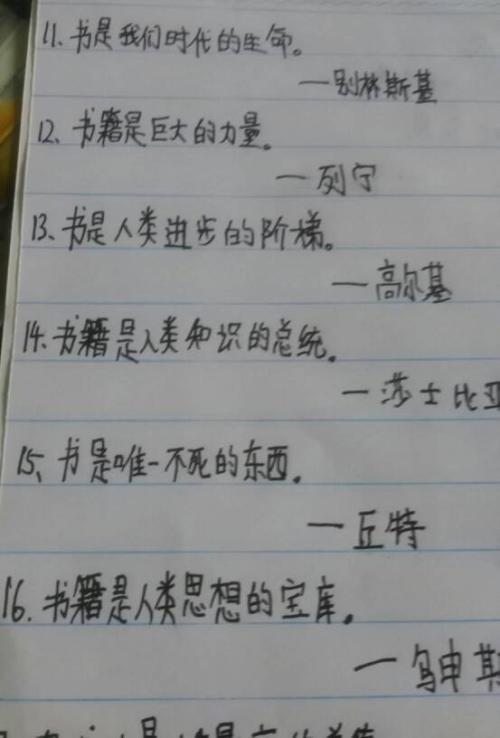 11、书是我们时代的生命。
—别林斯基
12、书籍是巨大的力量。
—列宁
13、书是人类进步的阶梯。
—高尔基
14、书籍是人类知识的总统。
—莎士比亚
15、书是唯一不死的东西。
—丘特
16、书籍是人类思想的宝库。
—乌申斯